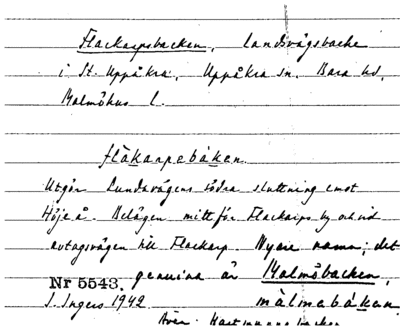 Flackarpsbacken, landsvägsbacke
i St. Uppåkra, Uppåkra sn, Bara hd,
Malmöhus l.
flåkarpebåken.
Utgör Lundavägens södra sluttning emot
Höjeå. Belägen mitt för Flackarps by och vid
avtagsvägen till Flackarp. Nyare namn; det
genuina är Malmöbacken,
Nr 5543.
I. Ingers 1942 målmebåken.
Även: Hartmanns backe